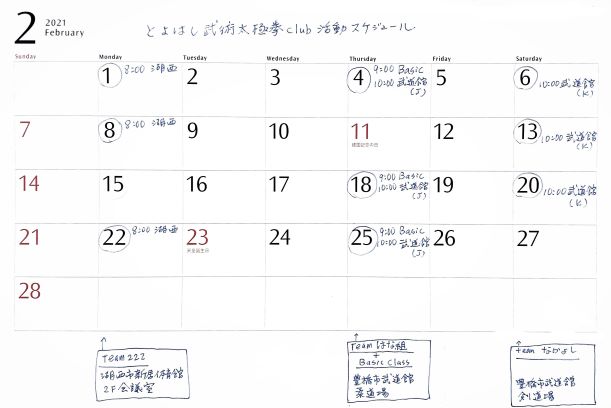 2 2021
February
とよはし武術太極拳club 活動スケジュール.
Sunday Monday Tuesday Wednesday Thursday Friday Saturday
1 8:00 湖西 2 3 4 9:00 Basic 5 6
10:00 武道館 10:00 武道館
(J) (K)
7 8 8:00 湖西 9 10 11 12 13 10:00 武道館
建国記念の日 (K)
14 15 16 17 18 9:00 Basic 19 20 10:00 武道館
10:00 武道館 (K)
(J)
21 22 8:00 湖西 23 24 25 9:00 Basic 26 27
天皇誕生日 10:00 武道館
(J)
28
Team 222
湖西市新居体育館
2F 会議室
Team はな組
+
Basic Class
豊橋市武道館
柔道場
team なかよし
豊橋市武道館
剣道場